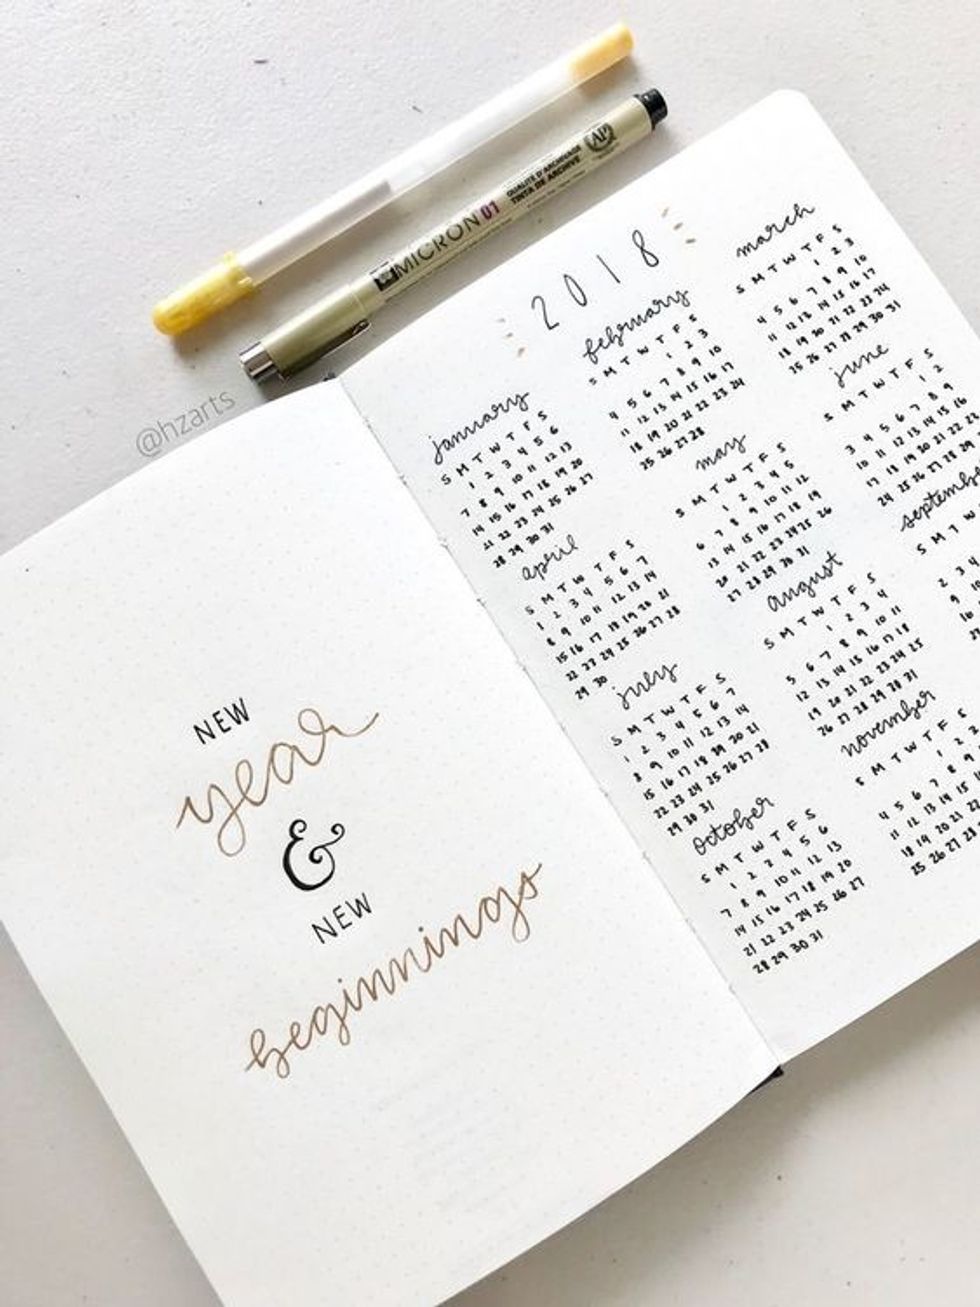 MICRON 01
QUALITÉ D'ARCHIVAGE
TINTA DE ARCHIVE
AP
@hzarts
NEW
year
&
NEW
beginnings
2018
january
S M T W T F S
1 2 3 4 5 6
7 8 9 10 11 12 13
14 15 16 17 18 19 20
21 22 23 24 25 26 27
28 29 30 31
february
S M T W T F S
1 2 3
4 5 6 7 8 9 10
11 12 13 14 15 16 17
18 19 20 21 22 23 24
25 26 27 28
march
S M T W T F S
1 2 3
4 5 6 7 8 9 10
11 12 13 14 15 16 17
18 19 20 21 22 23 24
25 26 27 28 29 30 31
april
S M T W T F S
1 2 3 4 5 6 7
8 9 10 11 12 13 14
15 16 17 18 19 20 21
22 23 24 25 26 27 28
29 30
may
S M T W T F S
1 2 3 4 5
6 7 8 9 10 11 12
13 14 15 16 17 18 19
20 21 22 23 24 25 26
27 28 29 30 31
june
S M T W T F S
1 2
3 4 5 6 7 8 9
10 11 12 13 14 15 16
17 18 19 20 21 22 23
24 25 26 27 28 29
july
S M T W T F S
1 2 3 4 5 6 7
8 9 10 11 12 13 14
15 16 17 18 19 20 21
22 23 24 25 26 27 28
29 30 31
august
S M T W T F S
1 2 3 4
5 6 7 8 9 10 11
12 13 14 15 16 17 18
19 20 21 22 23 24 25
26 27 28 29 30 31
septemb
S M T W
2 3 4
9 10
16
october
S M T W T F S
1 2 3 4 5 6
7 8 9 10 11 12 13
14 15 16 17 18 19 20
21 22 23 24 25 26 27
28 29 30 31
november
S M T W T F S
1 2
4 5 6 7 8 9
11 12 13 14 15
18 19 20 21 22
25 26 27 28